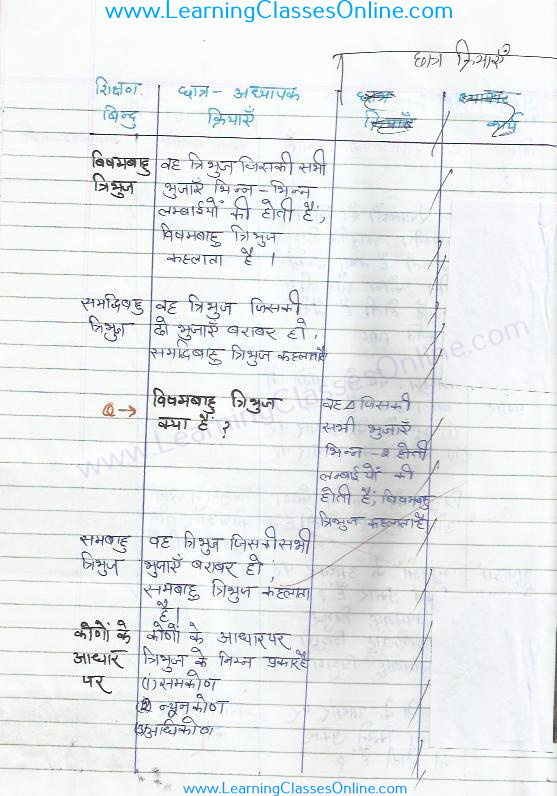 www.LearningClassesOnline.com
छात्र क्रियाएँ
शिक्षण छात्र - अध्यापक
बिन्दु क्रियाएँ कार्य
विषमबाहु वह त्रिभुज जिसकी सभी
त्रिभुज भुजाएँ भिन्न - भिन्न
लम्बाईयों की होती है,
विषमबाहु त्रिभुज
कहलाता है ।
समद्विबाहु वह त्रिभुज जिसकी
त्रिभुज दो भुजाएँ बराबर हो,
समद्विबाहु त्रिभुज कहलाता है
Q → विषमबाहु त्रिभुज वह △ जिसकी
क्या है ? सभी भुजाएँ
भिन्न - २ होती
लम्बाईयों की
होती है, विषमबाहु
त्रिभुज कहलाता है
समबाहु वह त्रिभुज जिसकी सभी
त्रिभुज भुजाएँ बराबर हो,
समबाहु त्रिभुज कहलाता
है।
कोणों के कोणों के आधार पर
आधार त्रिभुज के निम्न प्रकार है
पर (1) समकोण
(2) न्यूनकोण
(3) अधिकोण
www.LearningClassesOnline.com
www.LearningClassesOnline.com